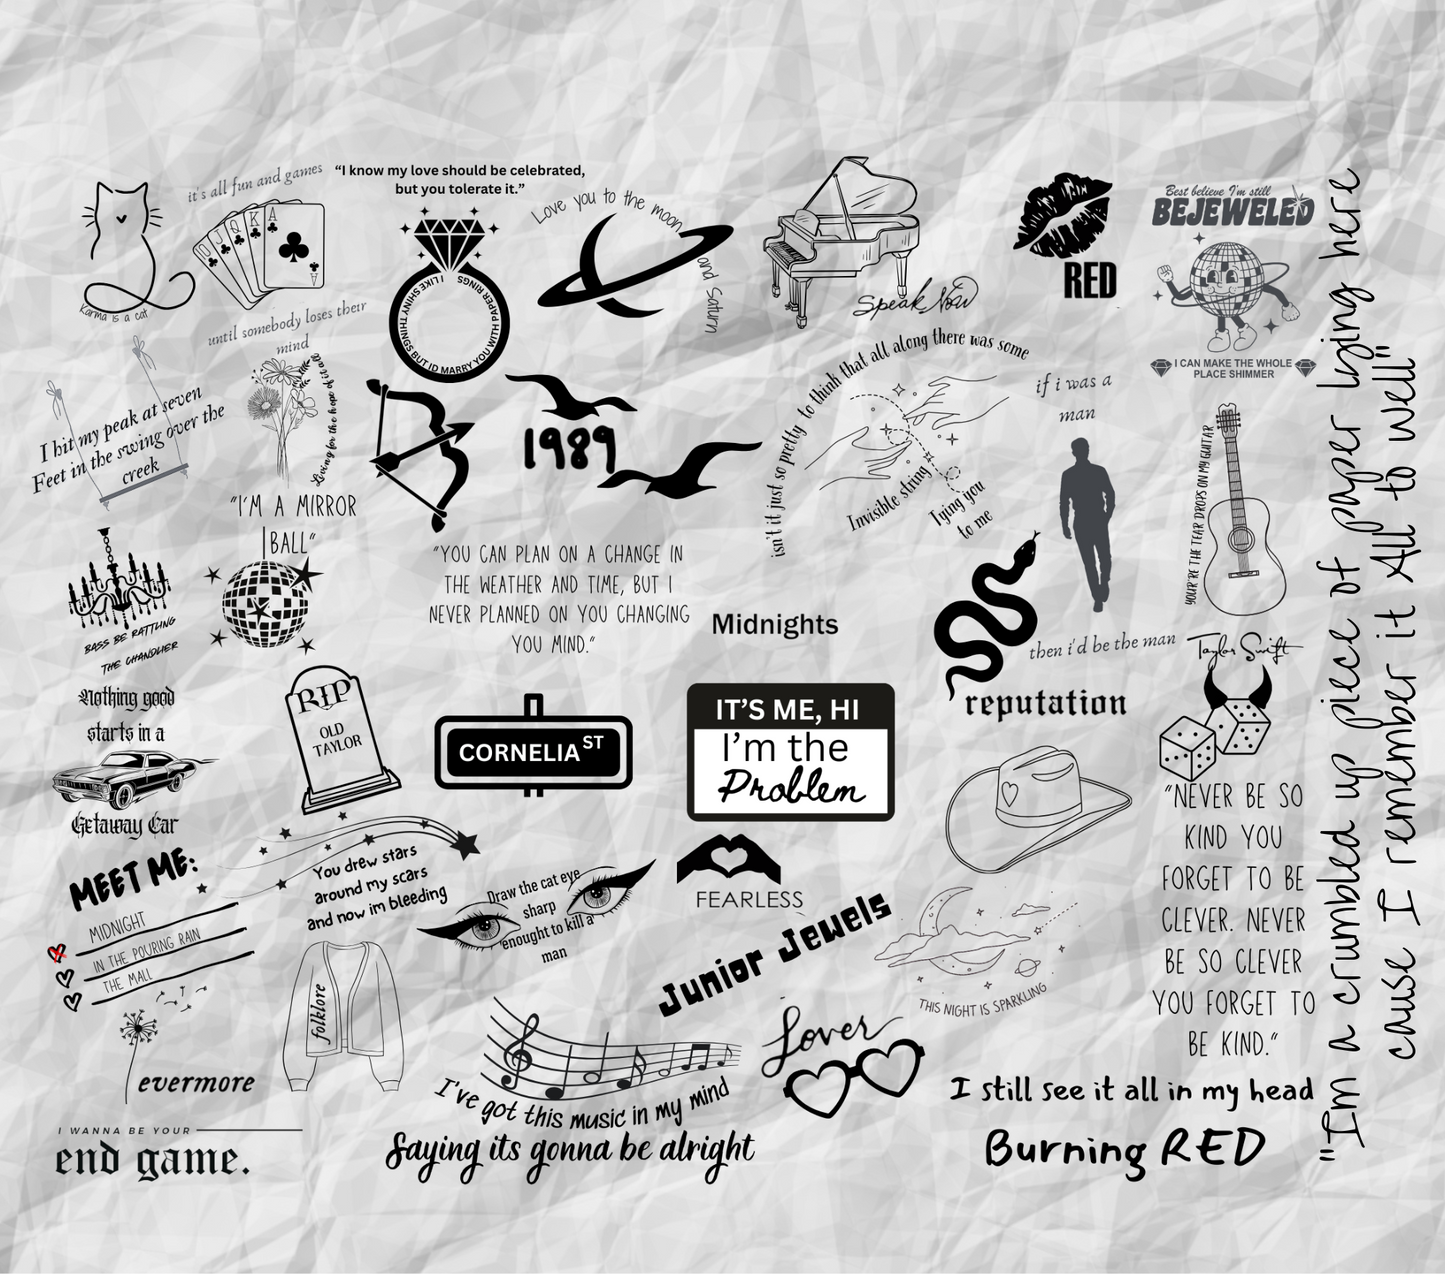 Karma is a cat
it's all fun and games
until somebody loses their
mind
"I know my love should be celebrated,
but you tolerate it."
I LIKE SHINY THINGS BUT ID MARRY YOU WITH PAPER RINGS
Love you to the moon
and Saturn
Speak Now
RED
Best believe I'm still
BEJEWELED
I CAN MAKE THE WHOLE
PLACE SHIMMER
I hit my peak at seven
Feet in the swing over the
creek
Living for the hope of it all
1989
isn't it just so pretty to think that all along there was some
Invisible string
Tying you
to me
if i was a
man
then i'd be the man
YOUR'RE THE TEAR DROPS ON MY GUITAR
Taylor Swift
"I'M A MIRROR
BALL"
BASS BE RATTLING
THE CHANDLIER
"YOU CAN PLAN ON A CHANGE IN
THE WEATHER AND TIME, BUT I
NEVER PLANNED ON YOU CHANGING
YOU MIND."
Midnights
reputation
Nothing good
starts in a
Getaway Car
RIP
OLD
TAYLOR
CORNELIA ST
IT'S ME, HI
I'm the
Problem
"NEVER BE SO
KIND YOU
FORGET TO BE
CLEVER. NEVER
BE SO CLEVER
YOU FORGET TO
BE KIND."
"Im a crumbled up piece of paper lying here
cause I remember it All to well"
MEET ME:
MIDNIGHT
IN THE POURING RAIN
THE MALL
You drew stars
around my scars
and now im bleeding
Draw the cat eye
sharp
enought to kill a
man
FEARLESS
Junior Jewels
THIS NIGHT IS SPARKLING
evermore
folklore
I've got this music in my mind
Saying its gonna be alright
Lover
I still see it all in my head
Burning RED
I WANNA BE YOUR
end game.